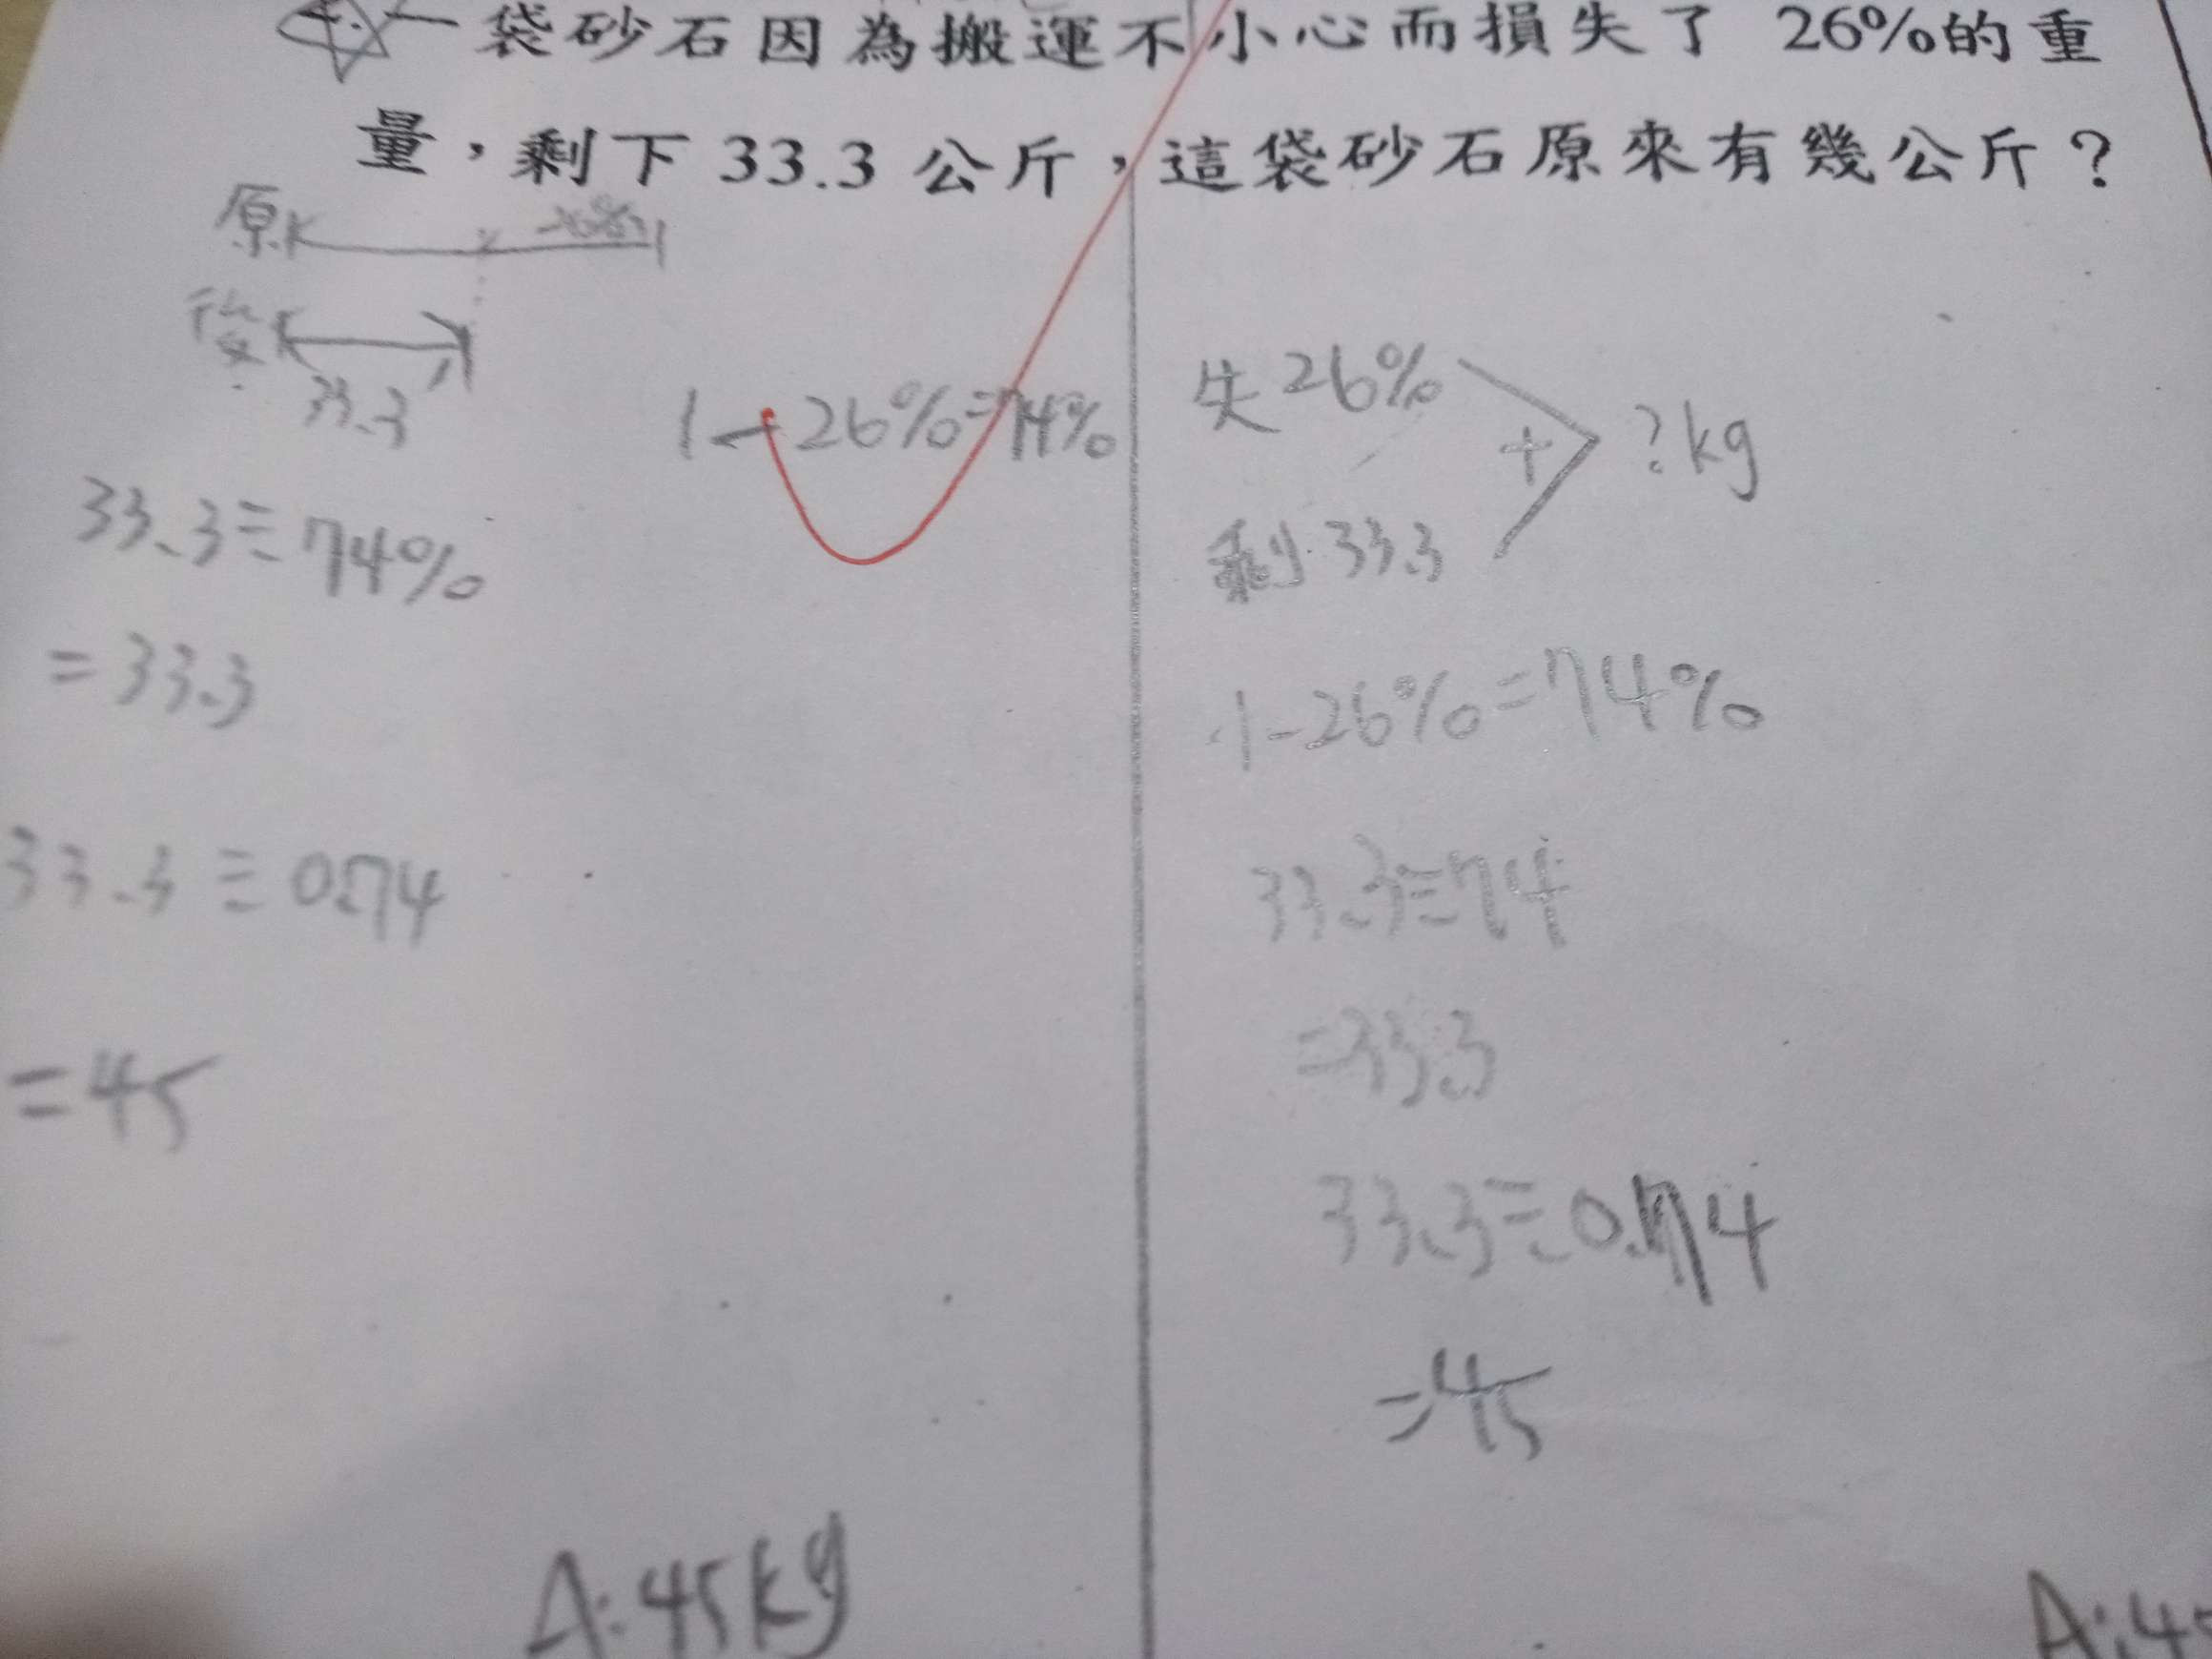 4. 一袋砂石因為搬運不小心而損失了 26%的重
量，剩下 33.3 公斤，這袋砂石原來有幾公斤？
原 26%
後
33.3
1-26%=74%
33.3÷74%
=33.3
33.3÷0.74
=45
A:45kg
失26%
+ ?kg
剩33.3
1-26%=74%
33.3÷74
=33.3
33.3÷0.74
=45
A:45